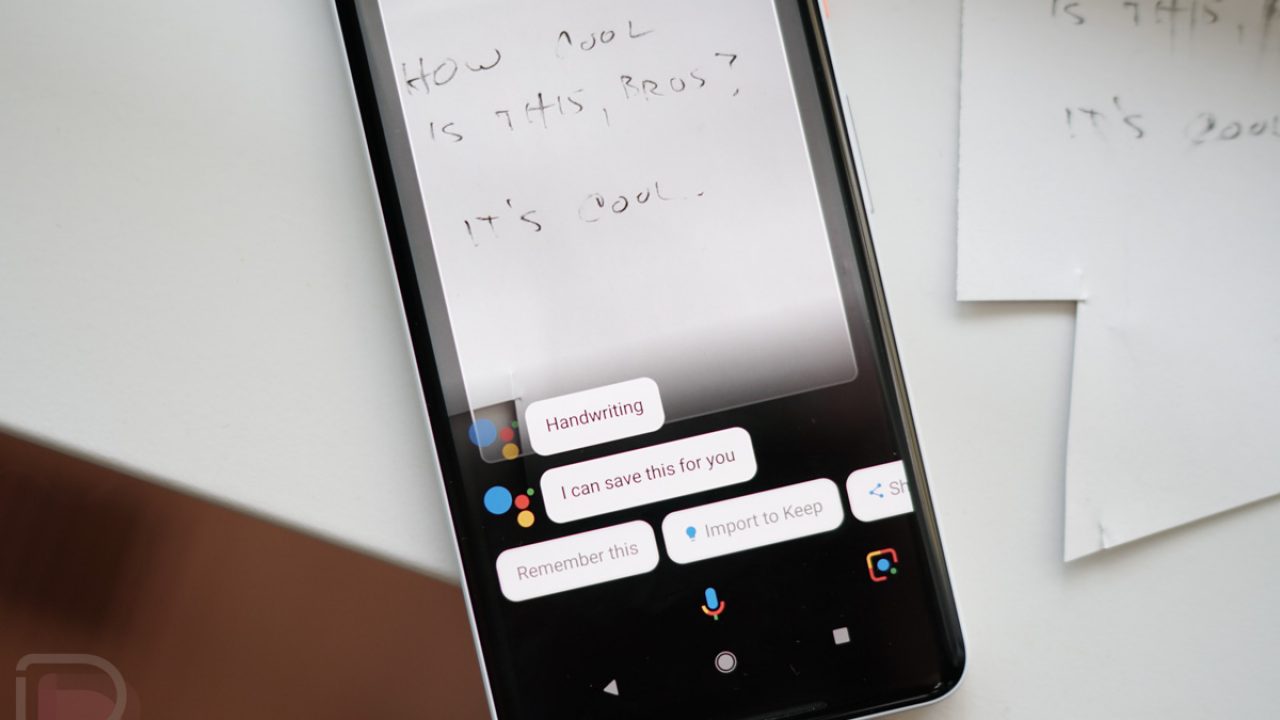 HOW COOL
IS THIS, BROS?
IT'S COOL.
Handwriting
I can save this for you
Remember this
Import to Keep
Sh
IS THIS,
IT'S COOL